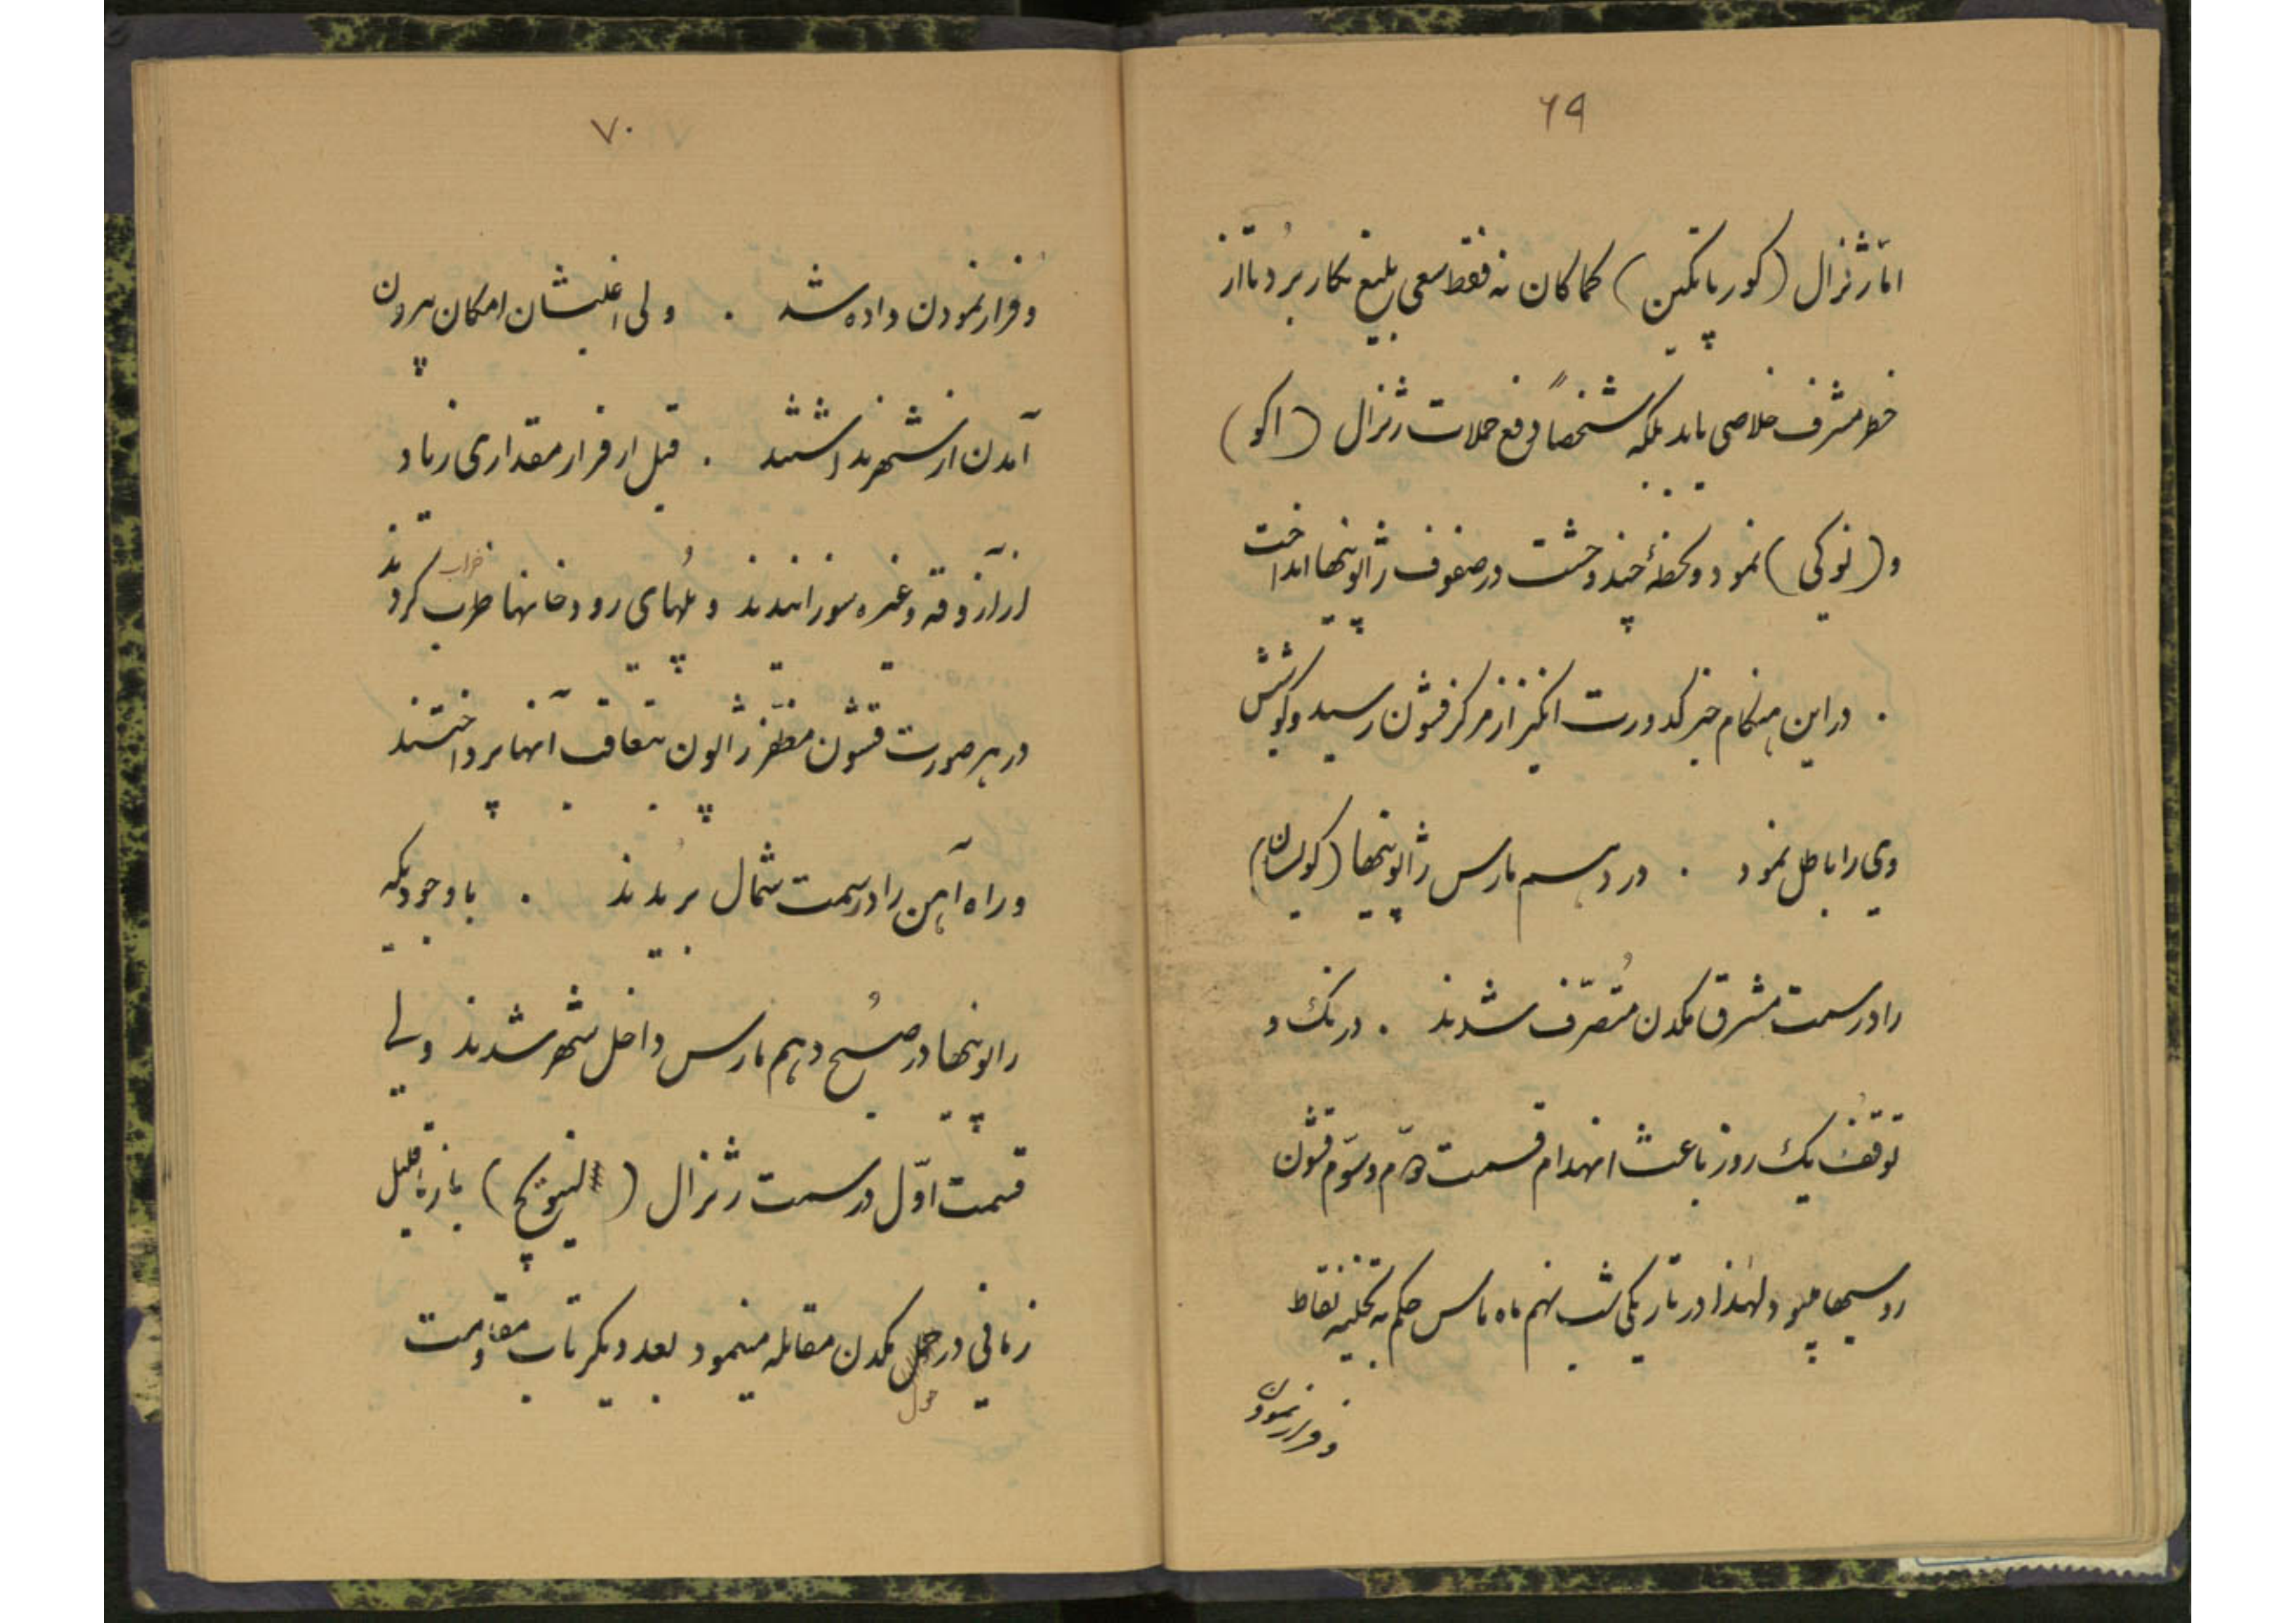 ۶۹
امّا ژنرال (کورپاتکین) کماکان نه فقط سعی بلیغ بکار بُرد تا از
خطر مشرف خلاصی یابد بلکه شخصاً دفع حملات ژنرال (اکو)
و (نوکی) نمود و لحظهٔ چند وحشت در صفوف ژاپونیها انداخت
. در این هنگام خبر کدورت انگیز از مرکز قشون رسید و کوشش
وی را باطل نمود . در دهم مارس ژاپونیها
را در سمت مشرق مکدن مُتصرّف شدند . درنگ و
توقف یک روز باعث انهدام قسمت دوّم و سوّم قشون
روسیها میبود ولهذا در تاریکی شب نهم ماه مارس حکم به تخلیه نقاط
و فرار نمودن
۷۰
و فرار نمودن داده شد . ولی اغلبشان امکان بیرون
آمدن از شهر نداشتند . قبل از فرار مقداری زیاد
از آزوقه و غیره سوزانیدند و پُلهای رودخانها خراب کردند
در هر صورت قشون مظفّر ژاپون بتعاقب آنها پرداختند
و راه آهن را در سمت شمال بُریدند . با وجودیکه
ژاپونیها در صُبح دهم مارس داخل شهر شدند ولی
قسمت اوّل در سمت ژنرال (لنیویچ) باز تا قلیل
زمانی در حول مکدن مقابله مینمود بعد دیگر تاب مقاومت